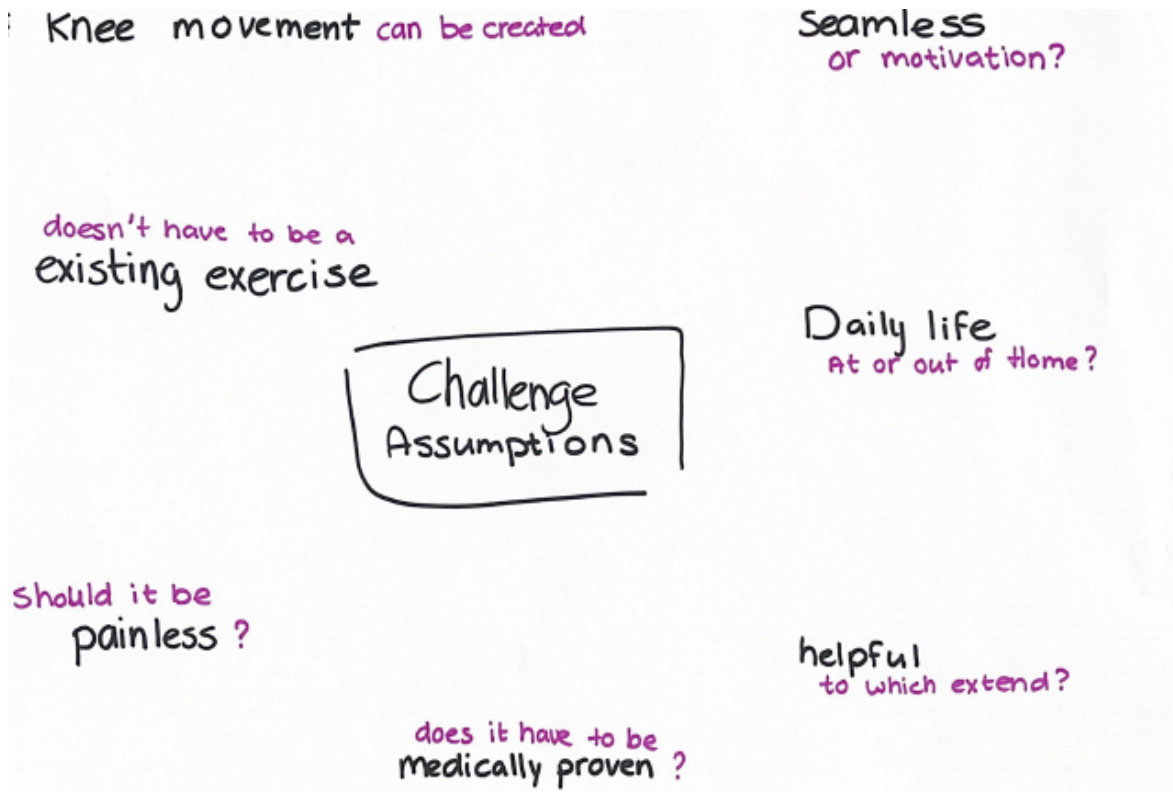 Knee movement can be created
Seamless
or motivation?
doesn't have to be a
existing exercise
Daily life
At or out of Home?
Challenge
Assumptions
Should it be
painless ?
helpful
to which extend?
does it have to be
medically proven ?